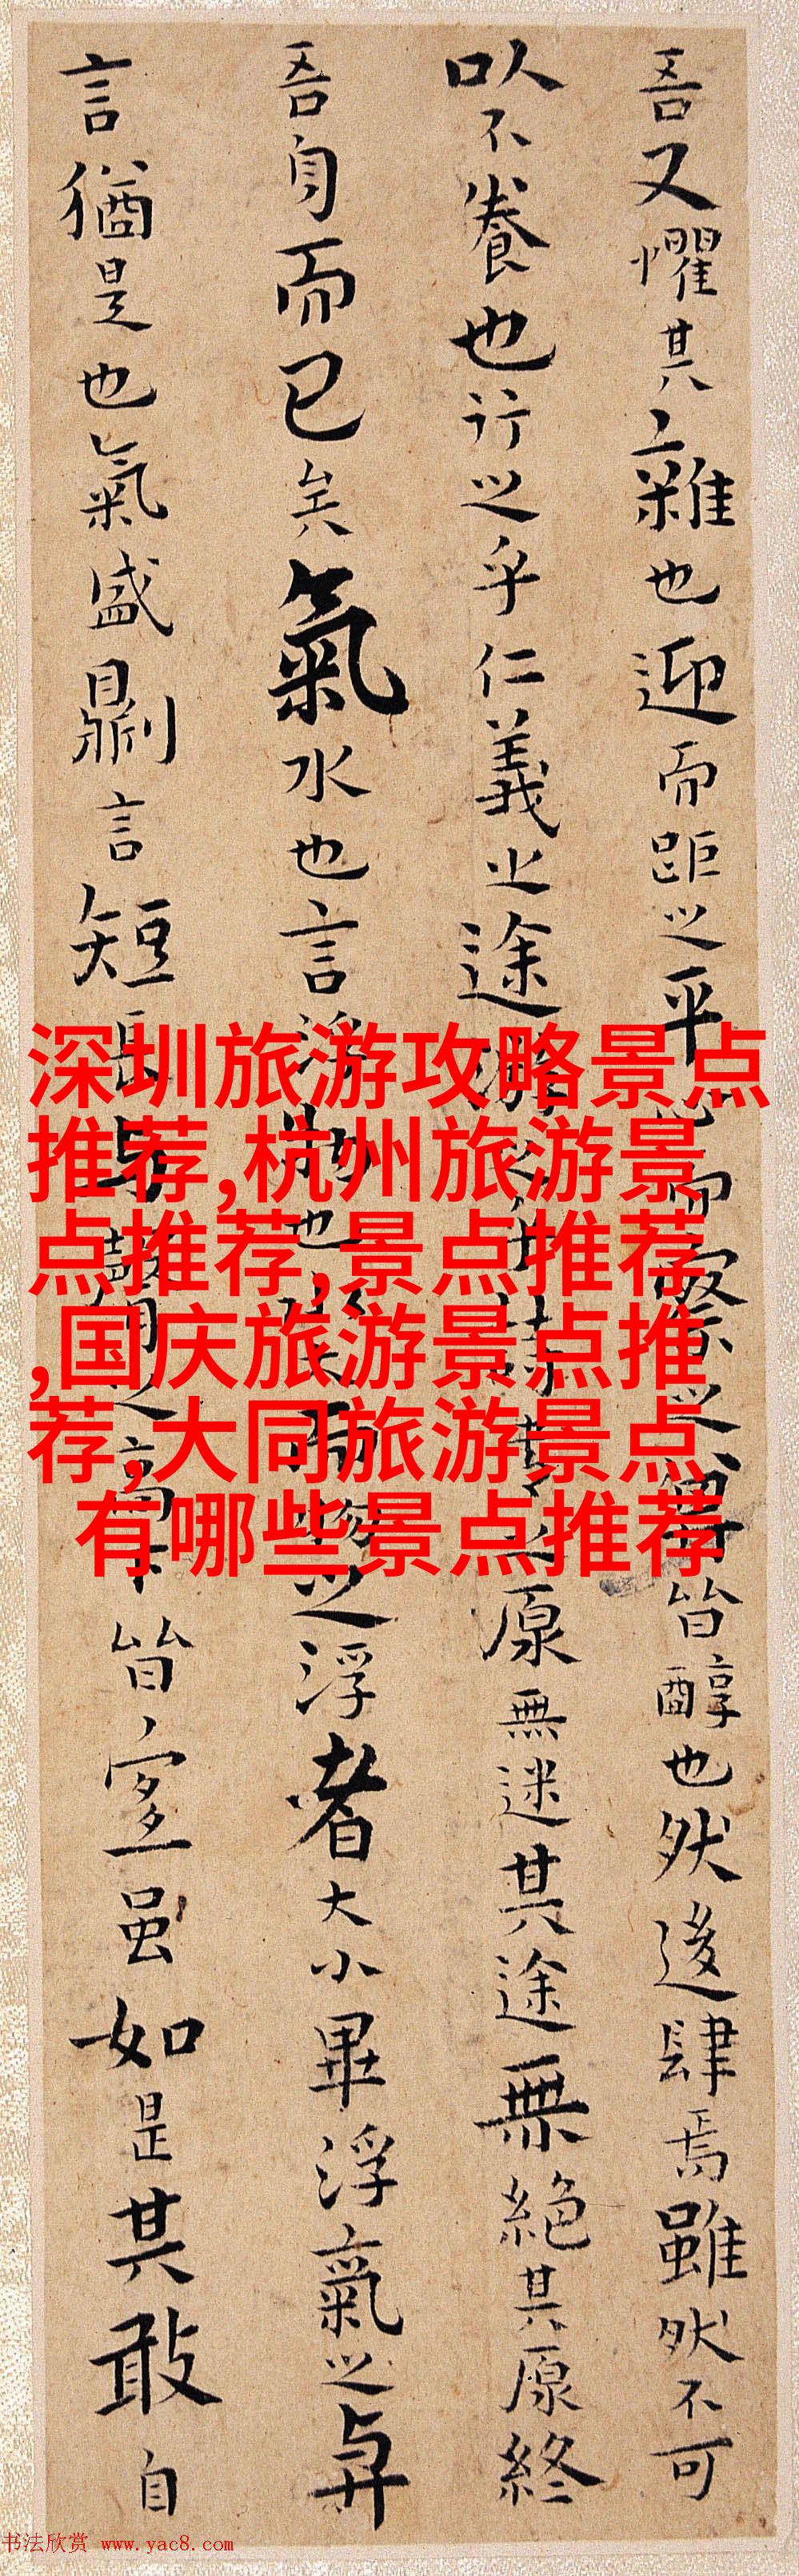 吾又懼其雜也迎而距之平心而察之其皆醇也然後肆焉雖然不可
以不養也行之乎仁義之途游之乎詩書之原無迷其途無絕其原終
吾身而已矣氣水也言浮物也水大而物之浮者大小畢浮氣之與
言猶是也氣盛則言短長與聲之高下皆宜雖如是其敢自
深圳旅游攻略景点
推荐,杭州旅游景
点推荐,景点推荐
,国庆旅游景点推
荐,大同旅游景点
有哪些景点推荐
书法欣赏 www.yac8.com